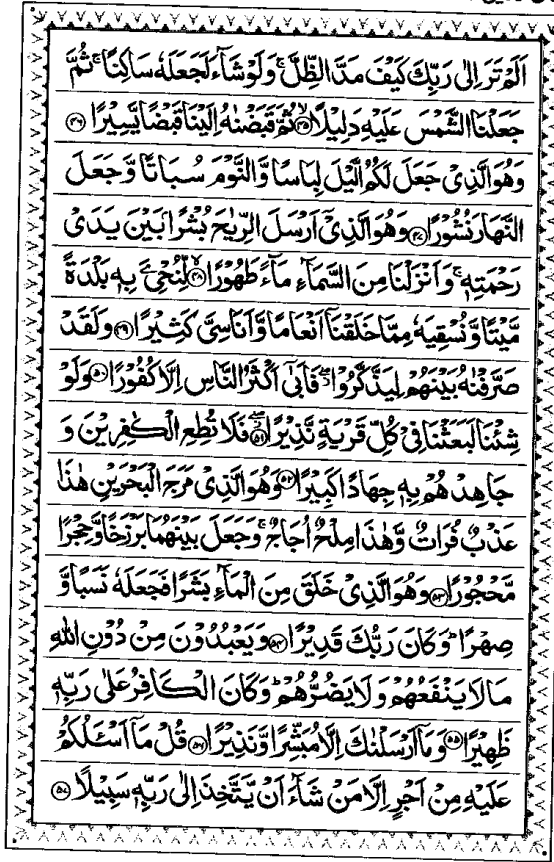 اَلَمْ تَرَ اِلٰى رَبِّكَ كَيْفَ مَدَّ الظِّلَّ ۚ وَلَوْ شَآءَ لَجَعَلَهٗ سَاكِنًا ۚ ثُمَّ
جَعَلْنَا الشَّمْسَ عَلَيْهِ دَلِيْلًا ۙ﴿۴۵﴾ ثُمَّ قَبَضْنٰهُ اِلَيْنَا قَبْضًا يَّسِيْرًا ﴿۴۶﴾
وَهُوَ الَّذِيْ جَعَلَ لَكُمُ الَّيْلَ لِبَاسًا وَّ النَّوْمَ سُبَاتًا وَّ جَعَلَ
النَّهَارَ نُشُوْرًا ﴿۴۷﴾ وَهُوَ الَّذِيْۤ اَرْسَلَ الرِّيٰحَ بُشْرًۢا بَيْنَ يَدَيْ
رَحْمَتِهٖ ۚ وَ اَنْزَلْنَا مِنَ السَّمَآءِ مَآءً طَهُوْرًا ۙ﴿۴۸﴾ لِّنُحْیِۦَ بِهٖ بَلْدَةً
مَّيْتًا وَّ نُسْقِيَهٗ مِمَّا خَلَقْنَاۤ اَنْعَامًا وَّ اَنَاسِيَّ كَثِيْرًا ﴿۴۹﴾ وَلَقَدْ
صَرَّفْنٰهُ بَيْنَهُمْ لِيَذَّكَّرُوْا ۖ فَاَبٰۤى اَكْثَرُ النَّاسِ اِلَّا كُفُوْرًا ﴿۵۰﴾ وَلَوْ
شِئْنَا لَبَعَثْنَا فِيْ كُلِّ قَرْيَةٍ نَّذِيْرًا ۖ﴿۵۱﴾ فَلَا تُطِعِ الْكٰفِرِيْنَ وَ
جَاهِدْهُمْ بِهٖ جِهَادًا كَبِيْرًا ﴿۵۲﴾ وَهُوَ الَّذِيْ مَرَجَ الْبَحْرَيْنِ هٰذَا
عَذْبٌ فُرَاتٌ وَّ هٰذَا مِلْحٌ اُجَاجٌ ۚ وَجَعَلَ بَيْنَهُمَا بَرْزَخًا وَّ حِجْرًا
مَّحْجُوْرًا ﴿۵۳﴾ وَهُوَ الَّذِيْ خَلَقَ مِنَ الْمَآءِ بَشَرًا فَجَعَلَهٗ نَسَبًا وَّ
صِهْرًا ؕ وَكَانَ رَبُّكَ قَدِيْرًا ﴿۵۴﴾ وَيَعْبُدُوْنَ مِنْ دُوْنِ اللّٰهِ
مَا لَا يَنْفَعُهُمْ وَلَا يَضُرُّهُمْ ؕ وَكَانَ الْكَافِرُ عَلٰى رَبِّهٖ
ظَهِيْرًا ﴿۵۵﴾ وَمَاۤ اَرْسَلْنٰكَ اِلَّا مُبَشِّرًا وَّ نَذِيْرًا ﴿۵۶﴾ قُلْ مَاۤ اَسْـَٔلُكُمْ
عَلَيْهِ مِنْ اَجْرٍ اِلَّا مَنْ شَآءَ اَنْ يَّتَّخِذَ اِلٰى رَبِّهٖ سَبِيْلًا ﴿۵۷﴾